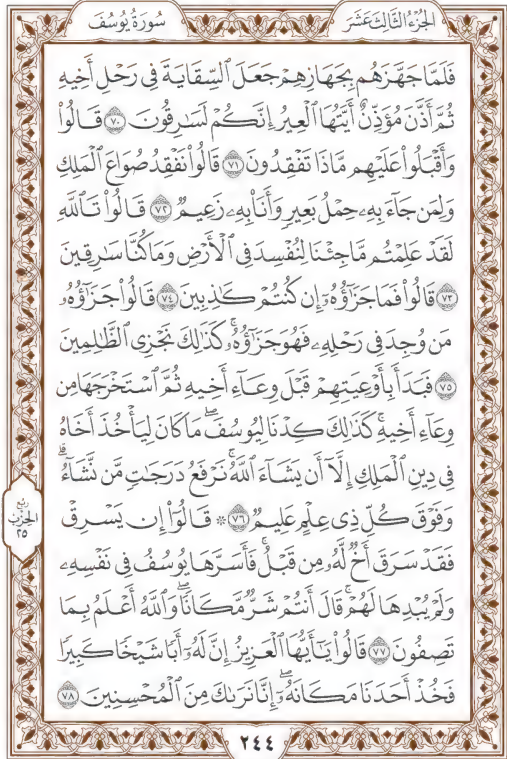 الجُزْءُ الثَّالِثَ عَشَرَ
سُورَةُ يُوسُفَ
فَلَمَّا جَهَّزَهُم بِجَهَازِهِمْ جَعَلَ ٱلسِّقَايَةَ فِى رَحْلِ أَخِيهِ
ثُمَّ أَذَّنَ مُؤَذِّنٌ أَيَّتُهَا ٱلْعِيرُ إِنَّكُمْ لَسَٰرِقُونَ ٧٠ قَالُوا۟
وَأَقْبَلُوا۟ عَلَيْهِم مَّاذَا تَفْقِدُونَ ٧١ قَالُوا۟ نَفْقِدُ صُوَاعَ ٱلْمَلِكِ
وَلِمَن جَآءَ بِهِۦ حِمْلُ بَعِيرٍ وَأَنَا۠ بِهِۦ زَعِيمٌ ٧٢ قَالُوا۟ تَٱللَّهِ
لَقَدْ عَلِمْتُم مَّا جِئْنَا لِنُفْسِدَ فِى ٱلْأَرْضِ وَمَا كُنَّا سَٰرِقِينَ
٧٣ قَالُوا۟ فَمَا جَزَٰٓؤُهُۥٓ إِن كُنتُمْ كَٰذِبِينَ ٧٤ قَالُوا۟ جَزَٰٓؤُهُۥ
مَن وُجِدَ فِى رَحْلِهِۦ فَهُوَ جَزَٰٓؤُهُۥۚ كَذَٰلِكَ نَجْزِى ٱلظَّٰلِمِينَ
٧٥ فَبَدَأَ بِأَوْعِيَتِهِمْ قَبْلَ وِعَآءِ أَخِيهِ ثُمَّ ٱسْتَخْرَجَهَا مِن
وِعَآءِ أَخِيهِۚ كَذَٰلِكَ كِدْنَا لِيُوسُفَۖ مَا كَانَ لِيَأْخُذَ أَخَاهُ
فِى دِينِ ٱلْمَلِكِ إِلَّآ أَن يَشَآءَ ٱللَّهُۚ نَرْفَعُ دَرَجَٰتٍ مَّن نَّشَآءُۗ
وَفَوْقَ كُلِّ ذِى عِلْمٍ عَلِيمٌ ٧٦ ۞ قَالُوٓا۟ إِن يَسْرِقْ
فَقَدْ سَرَقَ أَخٌ لَّهُۥ مِن قَبْلُۚ فَأَسَرَّهَا يُوسُفُ فِى نَفْسِهِۦ
وَلَمْ يُبْدِهَا لَهُمْۚ قَالَ أَنتُمْ شَرٌّ مَّكَانًاۖ وَٱللَّهُ أَعْلَمُ بِمَا
تَصِفُونَ ٧٧ قَالُوا۟ يَٰٓأَيُّهَا ٱلْعَزِيزُ إِنَّ لَهُۥٓ أَبًا شَيْخًا كَبِيرًا
فَخُذْ أَحَدَنَا مَكَانَهُۥٓۖ إِنَّا نَرَىٰكَ مِنَ ٱلْمُحْسِنِينَ ٧٨
رُبع
الحِزْب
٢٥
٢٤٤